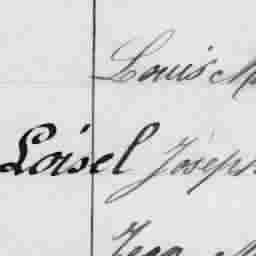 Louis
Loisel Joseph
Jean